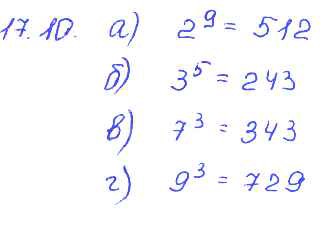 17.10. а) 2⁹ = 512
б) 3⁵ = 243
в) 7³ = 343
г) 9³ = 729